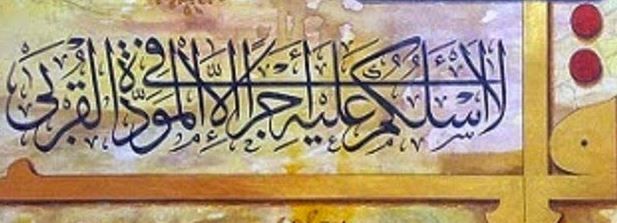 لا أسئلكم عليه أجرًا إلّا المودّة في القربى